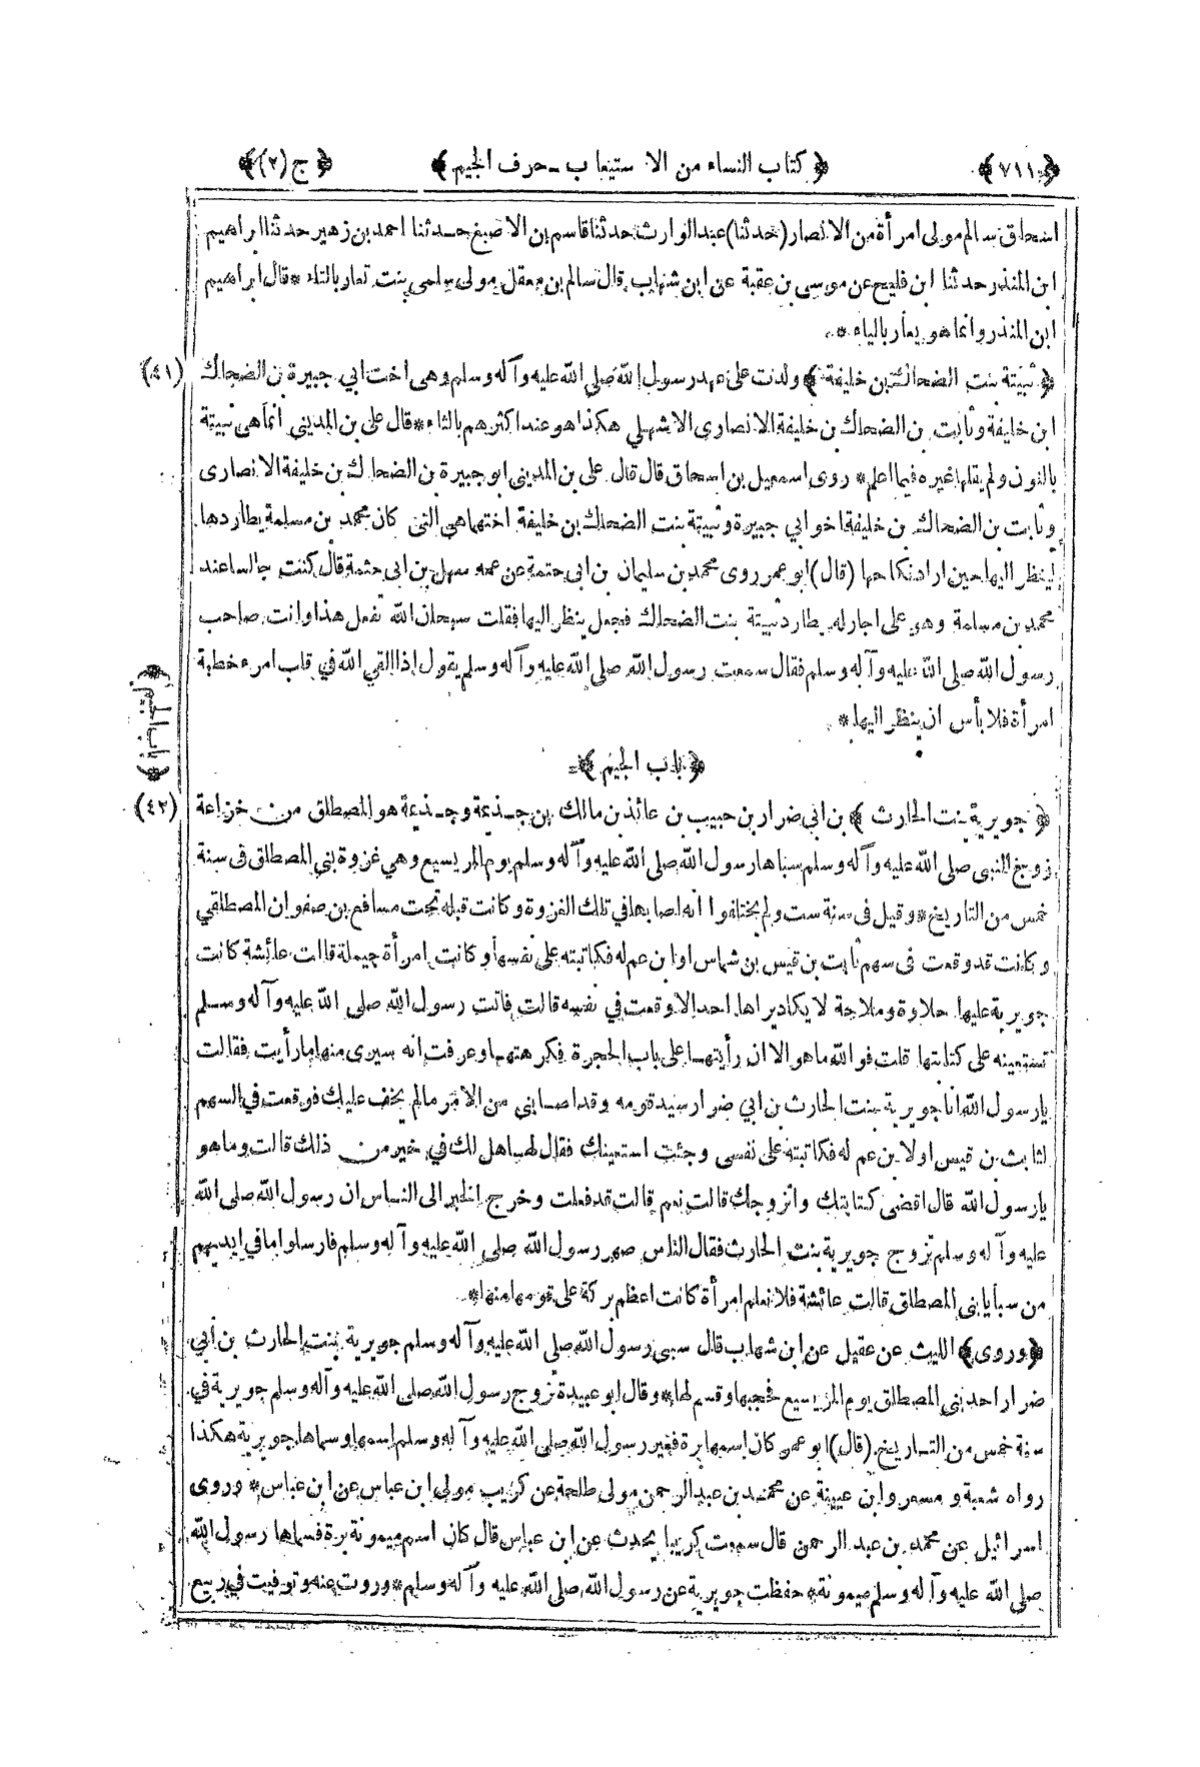 ﴿٧١١﴾ ﴿كتاب النساء من الاستيعاب ــ حرف الجيم﴾ ﴿ج(٢)﴾
اسحاق سالم مولى امرأة من الانصار (حدثنا) عبد الوارث حدثنا قاسم بن الاصبغ حدثنا احمد بن زهير حدثنا ابراهيم
ابن المنذر حدثنا ابن فليح عن موسى بن عقبة عن ابن شهاب قال سالم بن معقل مولى سلمى بنت تعار بالتاء * قال ابراهيم
ابن المنذر وانما هو يعار بالياء *
(٤١) ﴿ثبيتة بنت الضحاك بن خليفة﴾ ولدت على عهد رسول الله صلى الله عليه وآله وسلم وهى اخت ابي جبيرة بن الضحاك
ابن خليفة وثابت بن الضحاك بن خليفة الانصارى الاشهلي هكذا هو عند اكثرهم بالثاء * قال على بن المديني انما هى نبيتة
بالنون ولم يقلها غيره فيما اعلم * روى اسمعيل بن اسحاق قال قال على بن المدينى ابو جبيرة بن الضحاك بن خليفة الانصارى
وثابت بن الضحاك بن خليفة اخو ابي جبيرة وثبيتة بنت الضحاك بن خليفة اختهما هى التى كان محمد بن مسلمة يطاردها
لينظر اليها حين اراد نكاحها (قال) ابو عمر روى محمد بن سليمان بن ابى حثمة عن عمه سهل بن ابى حثمة قال كنت جالسا عند
محمد بن مسلمة وهو على اجار له يطارد ثبيتة بنت الضحاك فجعل ينظر اليها فقلت سبحان الله تفعل هذا وانت صاحب
رسول الله صلى الله عليه وآله وسلم فقال سمعت رسول الله صلى الله عليه وآله وسلم يقول اذا القي الله في قلب امرء خطبة
امرأة فلا بأس ان ينظر اليها *
﴿باب الجيم﴾
﴿باب الجيم﴾
(٤٢) ﴿جويرية بنت الحارث﴾ بن ابي ضرار بن حبيب بن عائذ بن مالك بن جذيمة وجذيمة هو المصطلق من خزاعة
زوج النبى صلى الله عليه وآله وسلم سباها رسول الله صلى الله عليه وآله وسلم يوم المريسيع وهي غزوة بني المصطلق فى سنة
خمس من التاريخ * وقيل فى سنة ست ولم يختلفوا انه اصابها في تلك الغزوة وكانت قبله تحت مسافع بن صفوان المصطلقي
وكانت قد وقعت فى سهم ثابت بن قيس بن شماس او ابن عم له فكاتبته على نفسها وكانت امرأة جميلة قالت عائشة كانت
جويرية عليها حلاوة وملاحة لا يكاد يراها احد الا وقعت في نفسه قالت فاتت رسول الله صلى الله عليه وآله وسلم
تستعينه على كتابتها قلت فوالله ما هو الا ان رأيتها على باب الحجرة فكرهتها وعرفت انه سيرى منها ما رأيت فقالت
يا رسول الله انا جويرية بنت الحارث بن ابي ضرار سيد قومه وقد اصابنى من الامر ما لم يخف عليك فوقعت في السهم
لثابت بن قيس او لابن عم له فكاتبته على نفسى وجئت استعينك فقال لها هل لك في خير من ذلك قالت وما هو
يا رسول الله قال اقضى كتابتك واتزوجك قالت نعم قالت قد فعلت وخرج الخبر الى الناس ان رسول الله صلى الله
عليه وآله وسلم تزوج جويرية بنت الحارث فقال الناس صهر رسول الله صلى الله عليه وآله وسلم فارسلوا ما في ايديهم
من سبايا بنى المصطلق قالت عائشة فلا نعلم امرأة كانت اعظم بركة على قومها منها *
﴿وروى﴾ الليث عن عقيل عن ابن شهاب قال سبى رسول الله صلى الله عليه وآله وسلم جويرية بنت الحارث بن أبي
ضرار احد بني المصطلق يوم المريسيع فحجبها وقسم لها * وقال ابو عبيدة تزوج رسول الله صلى الله عليه وآله وسلم جويرية في
سنة خمس من التاريخ (قال) ابو عمر كان اسمها برة فغير رسول الله صلى الله عليه وآله وسلم اسمها وسماها جويرية هكذا
رواه شعبة و مسعر وابن عيينة عن محمد بن عبد الرحمن مولى طلحة عن كريب مولى ابن عباس عن ابن عباس * وروى
اسرائيل عن محمد بن عبد الرحمن قال سمعت كريبا يحدث عن ابن عباس قال كان اسم ميمونة برة فسماها رسول الله
صلى الله عليه وآله وسلم ميمونة * حفظت جويرية عن رسول الله صلى الله عليه وآله وسلم * وروت عنه وتوفيت في ربيع